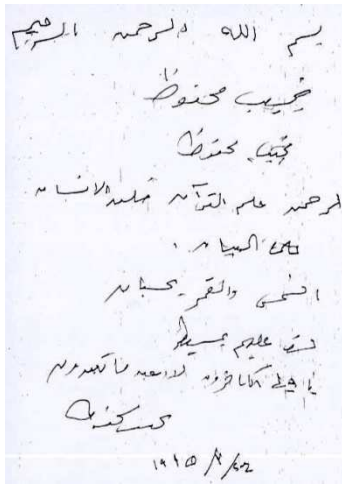 بسم الله الرحمن الرحيم
نجيب محفوظ
نجيب محفوظ
الرحمن علم القرآن خلق الانسان
علمه البيان .
الشمس والقمر بحسبان
لست عليهم بمسيطر
يا أيها الكافرون لا أعبد ما تعبدون
نجيب محفوظ